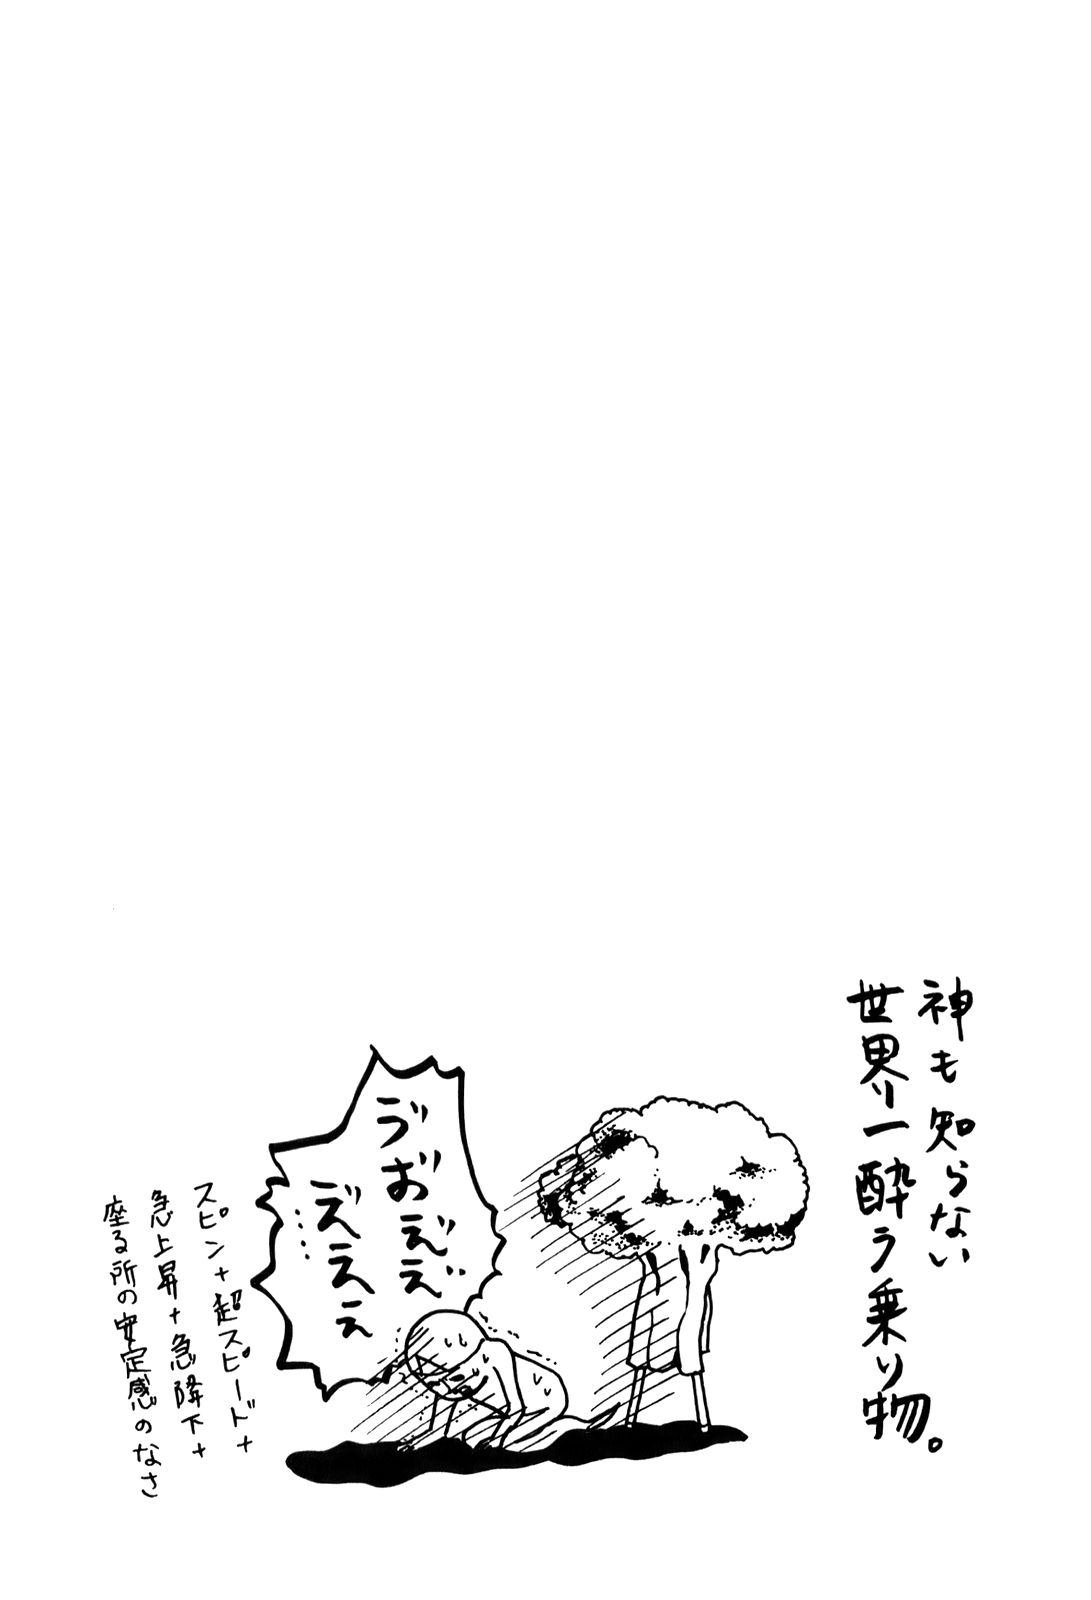 神も知らない
世界り一酔う乗り物。
ゔおえ゙え゙
え゙ええ
……
スピン+超スピード+
急上昇+急降下+
座る所の安定感のなさ